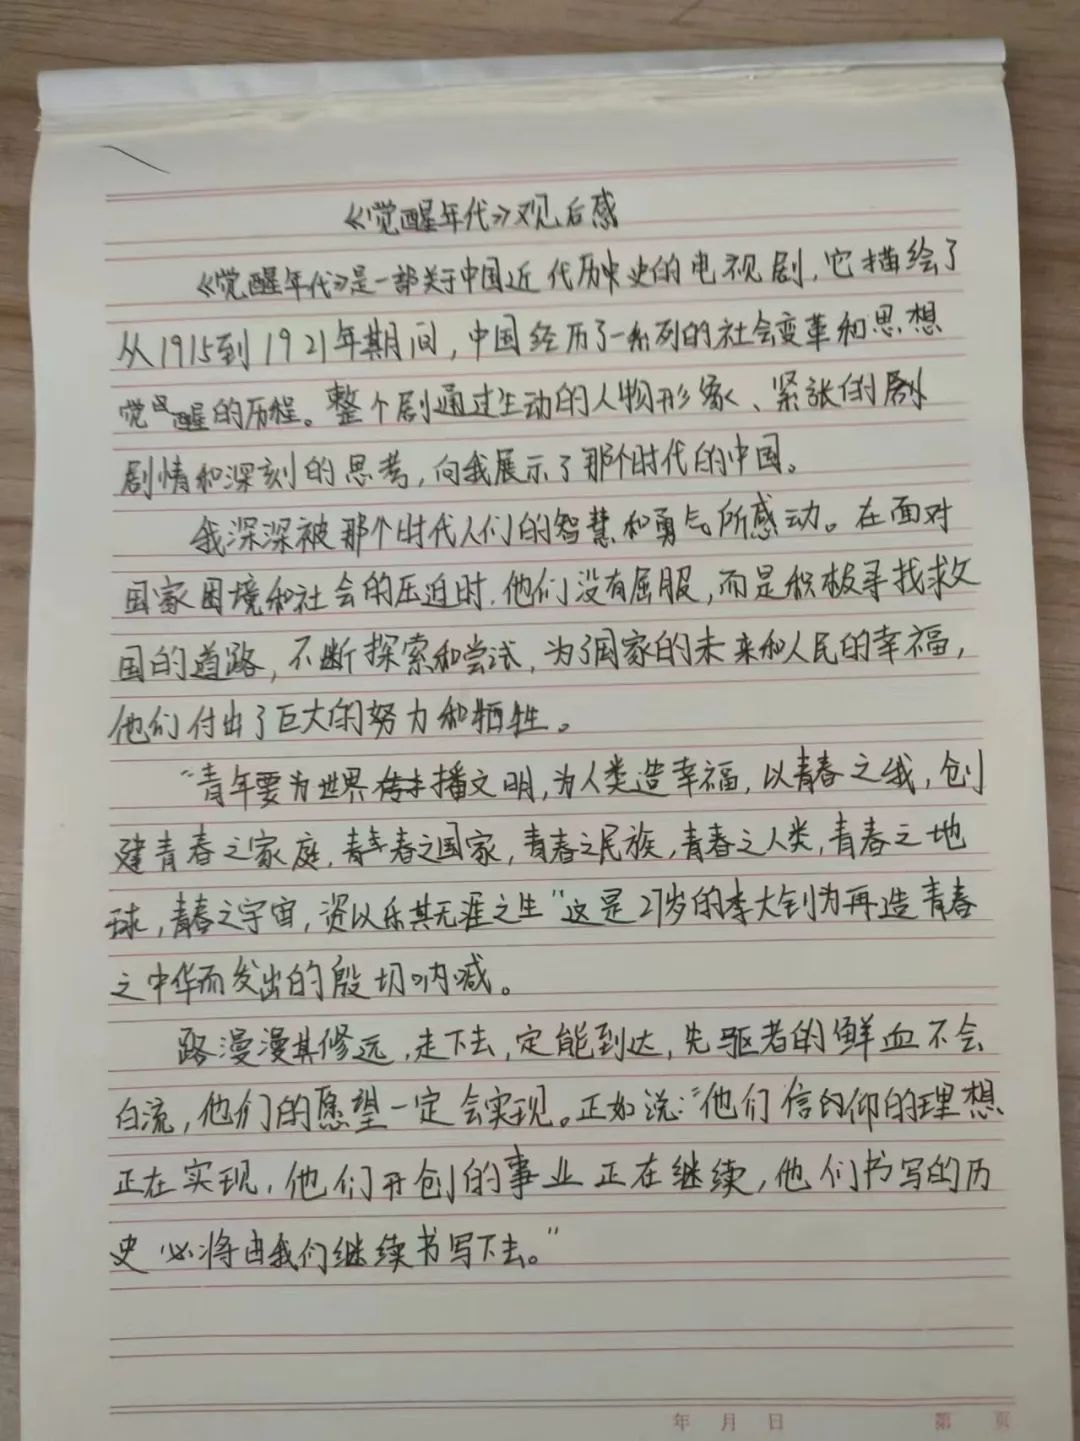 《觉醒年代》观后感
《觉醒年代》是一部关于中国近代历史的电视剧，它描绘了
从1915到1921年期间，中国经历了一系列的社会变革和思想
觉醒的历程。整个剧通过生动的人物形象、紧张的剧
剧情和深刻的思考，向我展示了那个时代的中国。
我深深被那个时代人们的智慧和勇气所感动。在面对
国家困境和社会的压迫时，他们没有屈服，而是积极寻找救
国的道路，不断探索和尝试，为了国家的未来和人民的幸福，
他们付出了巨大的努力和牺牲。
“青年要为世界传播文明，为人类造幸福，以青春之我，创
建青春之家庭，青春之国家，青春之民族，青春之人类，青春之地
球，青春之宇宙，资以乐其无涯之生”这是27岁的李大钊为再造青春
之中华而发出的殷切呐喊。
路漫漫其修远，走下去，定能到达，先驱者的鲜血不会
白流，他们的愿望一定会实现。正如说：“他们信仰的理想
正在实现，他们开创的事业正在继续，他们书写的历
史必将由我们继续书写下去。”
年 月 日 第 页